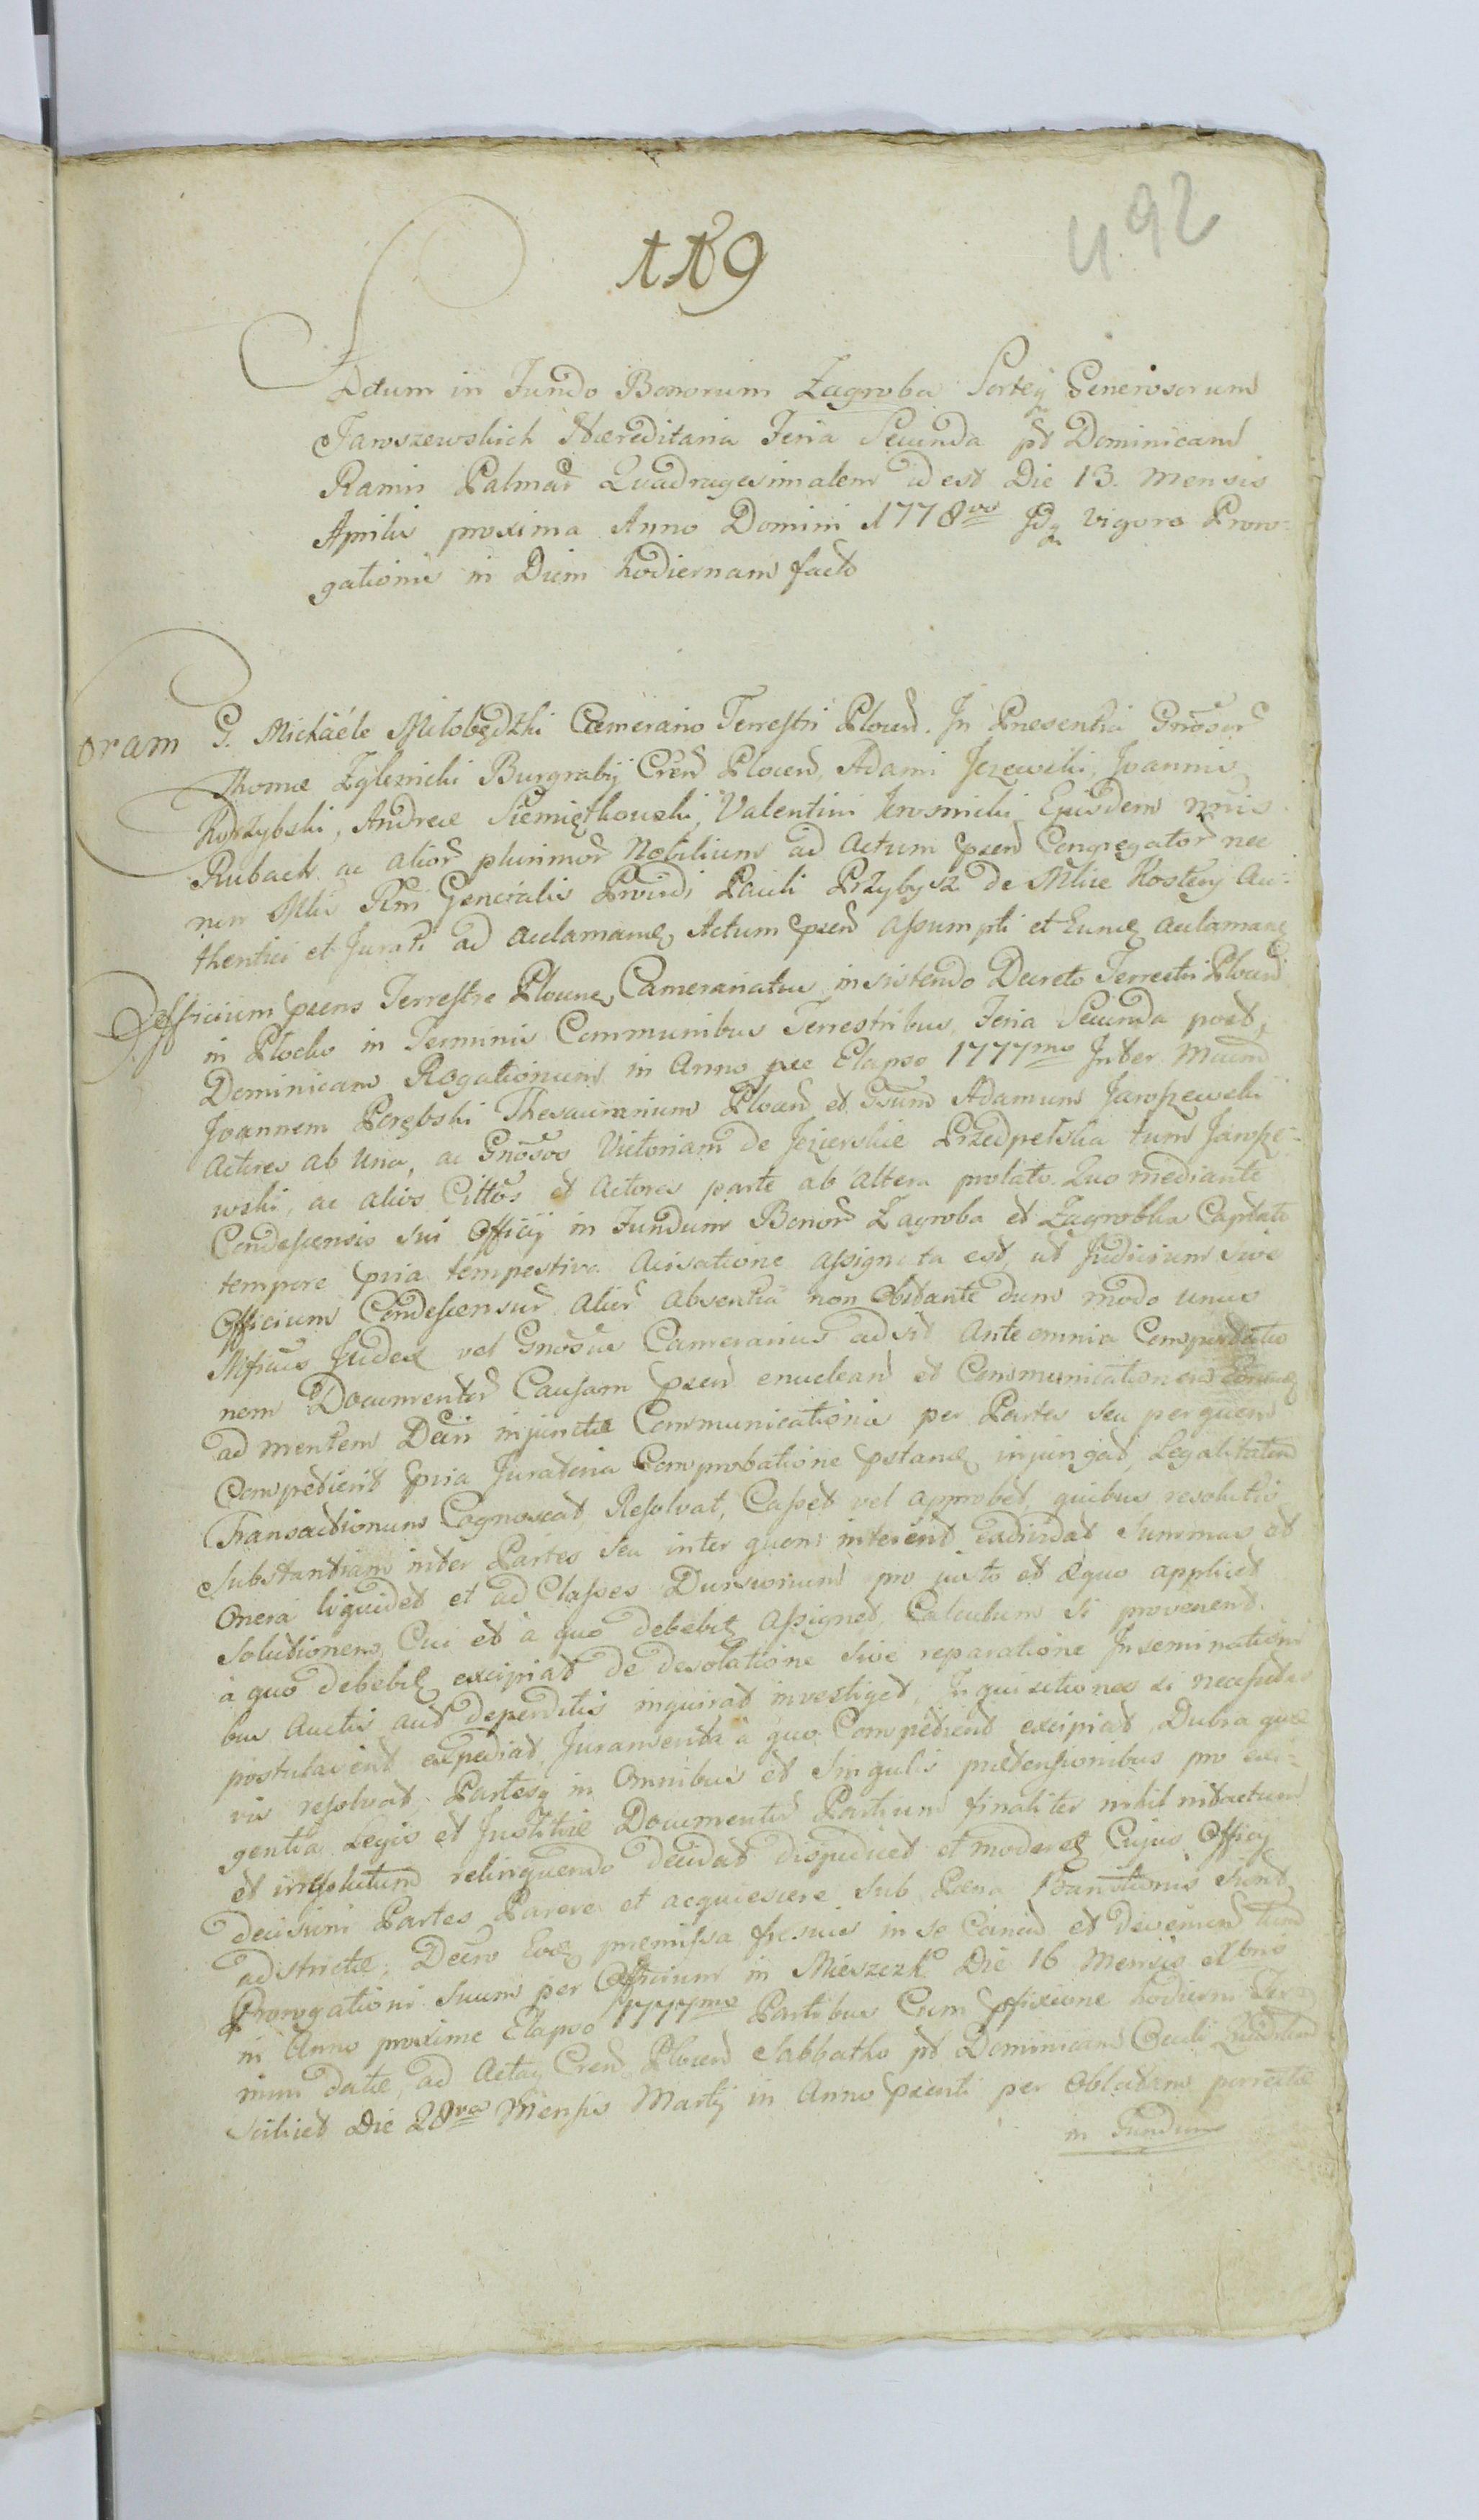 492
119
Actum in Fundo Bonorum Zagroba Sortey Generosorum
Jaroszewskich Hæreditaria Feria Secunda pt Dominicam
Ramis Palmar Quadragesimalem id est Die 13. Mensis
Aprilis proxima Anno Domini 1778vo Idq vigore Proro-
gationis in Diem hodiernam facto
Coram G. Michaéle Miłobędzki Camerario Terrestri Plocen. In Præsentia Gnosor
Thomæ Zglenicki Burgrabij Cren Plocen, Adami Jezewski, Joannis
Kodzybski, Andreæ Siemiętkowski, Valentini Krosnicki Ejusdem nnis
Rubach ac alior plurimor Nobilium ad Actum psen Congregator nec
non Mlis Rni Generalis Providi Pauli Przybysz de Mlice Kostery Au-
thentici et Jurati ad acclamang Actum psen assumpti et Eunq acclamang
Officium psens Terrestre Plocune Camerariatus insistendo Decreto Terrestri Plocen
in Plocko in Terminis Communibus Terrestribus Feria Secunda post
Dominicam Rogationum in Anno præ Elapso 1777mo Inter Mcum
Joannem Porębski Thesaurarium Plocen et Gsum Adamum Jaroszewski
Actores ab una, ac Gnosos Victoriam de Jezierskie Przedpełska tum Jarosze-
wski, ac alios Cittos et Actores parte ab altera prolato. Quo mediante
Condescensio sui Officij in Fundum Bonor Zagroba et Zagrobka Captato
tempore pvia tempestiva Avisatione assignata est, ut Judicium sive
Officium Condescensor. Alior absentia non obstante dum modo unus
Mficus Judex vel Gnosus Camerarius adsit Ante omnia Comportatio
nem Documentor Causam psen enuclean et Communicationem Eorunq
ad mentem Decri injunctæ Communicationis per Partes seu per quem
Competierit pvia Juratoria Comprobatione pstang injungat, Legalitatem
Transactionum Cognoscat Resolvat, Casset vel approbet, quibus resolutis
Substantiam inter Partes seu inter quem intererit exdividat Summas et
Onera liquidet et ad Classes Divisionum pro justo et æquo applicet
Solutionem Cui et à quo debebit Assignet, Calculum si provenerit
à quo debebit excipiat de desolatione sive reparatione Inseminationi
bus Auctis aut deperditis inquirat investiget, Inquisitiones si necessitas
postulaverit expediat, Juramenta à quo Competierit excipiat, Dubia quæ
vis resolvat, Partesq in Omnibus et Singulis prætensionibus pro exi-
gentia Legis et Justitiæ Documentor Partium finaliter nihil intactum
et irresolutum relinquendo decidat dijudicet et moderet, Cujus Officij
decisioni Partes Parere et acquiescere sub Pæna Bannitionis sunt
adstrictæ, Decro Eoq præmissa fusius in se Conen et Deveniend tum
Prorogationi Suum per Officium in Mieszczk Die 16 Mensis Xbris
in Anno proxime Elapso 1777mo Partibus Cum pfixione hodierni Ter
mini datæ, ad Actaq Cren Plocen Sabbatho pt Dominicam Oculi
Scilicet Die 28va Mensis Martij in Anno psenti per Oblatam porrectæ
in Fundum